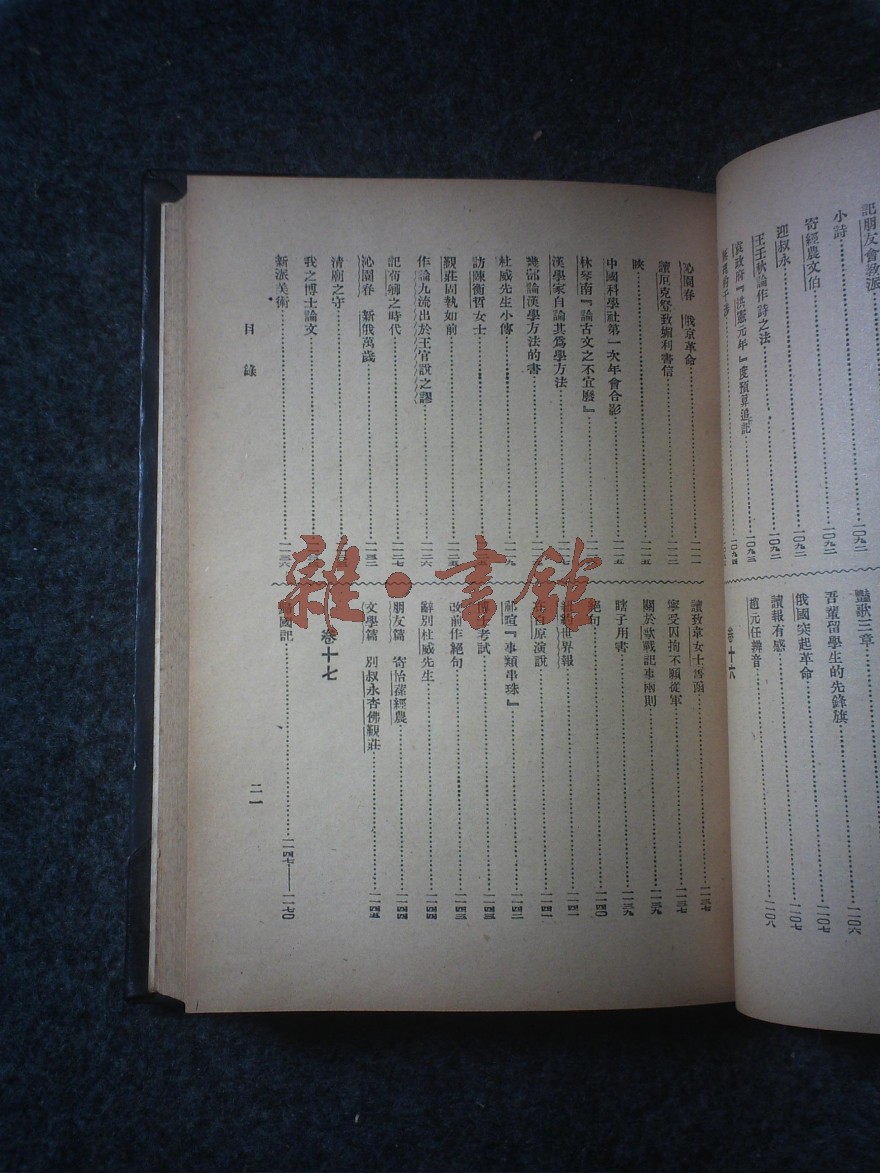 記朋友會教派 一〇九二
小詩 一〇九二
寄經農文伯 一〇九二
迎叔永 一〇九二
王壬秋論作詩之法 一〇九三
袁政府『洪憲元年』度預算追記
豔歌三章 一一〇六
吾輩留學生的先鋒旗 一一〇七
俄國突起革命 一一〇七
讀報有感 一一〇八
趙元任辨音
卷十六
沁園春 俄京革命
讀厄克登致媚利書信
映 一一一五
中國科學社第一次年會合影 一一一五
林琴南『論古文之不宜廢』
漢學家自論其為學方法
論漢學方法的書
杜威先生小傳
訪陳衡哲女士
覲莊固執如前
作論九流出於王官說之謬 一一二六
記荀卿之時代 一一二七
沁園春 新俄萬歲
清廟之守
我之博士論文
新派美術 一一三六
讀致韋女士舊函 一一三七
寧受囚拘不願從軍 一一三七
關於歐戰記事兩則 一一三九
瞎子用書 一一三九
絕句 一一四〇
紐約世界報 一一四一
在白原演說 一一四一
祁暄『事類串珠』 一一四二
博士考試 一一四三
改前作絕句 一一四三
辭別杜威先生 一一四四
朋友篇 寄怡蓀經農 一一四四
文學篇 別叔永杏佛覲莊 一一四五
卷十七
歸國記 一一四七——一一七〇
目錄
二一
雜·書館